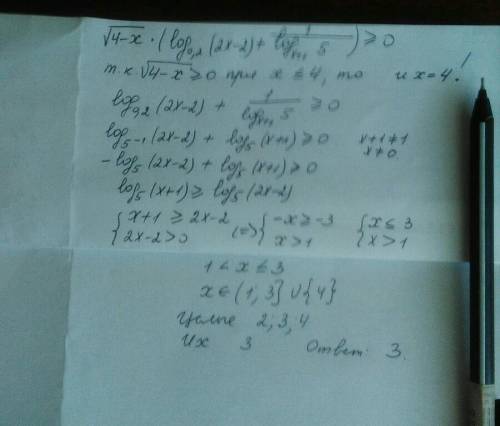 √4-x · (log₀,₂(2x-2) + 1/logₓ₊₁ 5) ≥ 0
т.к. √4-x ≥ 0 при x ≤ 4, то и x=4!
log₀,₂(2x-2) + 1/logₓ₊₁ 5 ≥ 0
log₅₋₁(2x-2) + log₅(x+1) ≥ 0 x+1≠1
x≠0
-log₅(2x-2) + log₅(x+1) ≥ 0
log₅(x+1) ≥ log₅(2x-2)
{x+1 ≥ 2x-2 (=> {-x ≥ -3 {x ≤ 3
{2x-2>0 {x>1 {x>1
1 < x ≤ 3
x∈(1; 3] ∪ {4}
Целые 2; 3; 4
Их 3 Ответ: 3.